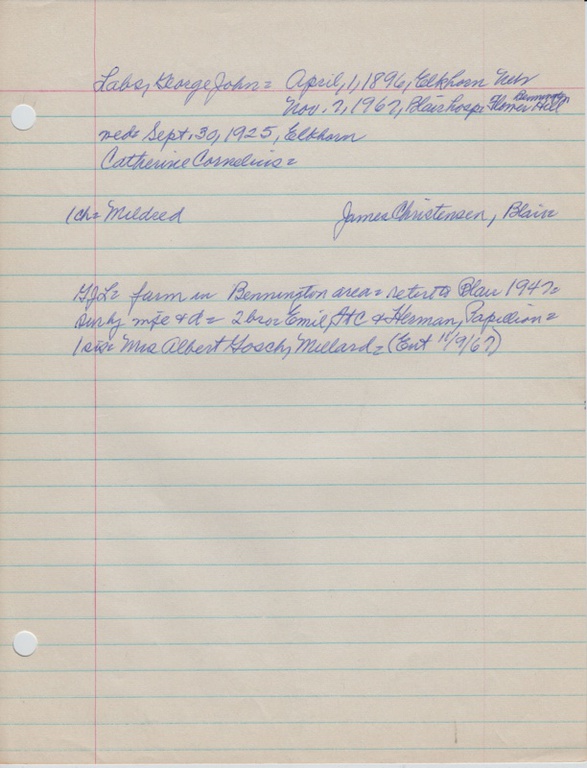 Labs, George John = April, 1, 1896, Elkhorn Nebr
Nov. 7, 1967, Blair hosp = Flower Hill Bennington
wed = Sept. 30, 1925, Elkhorn
Catherine Cornelius =
1 ch = Mildred James Christensen, Blair =
GJL = farm in Bennington area = retir to Blair 1947 =
surv by wife & d = 2 bro = Emil, & Herman, Papillion =
1 sis = Mrs Albert Gosch, Millard = (Ent 11/9/67)